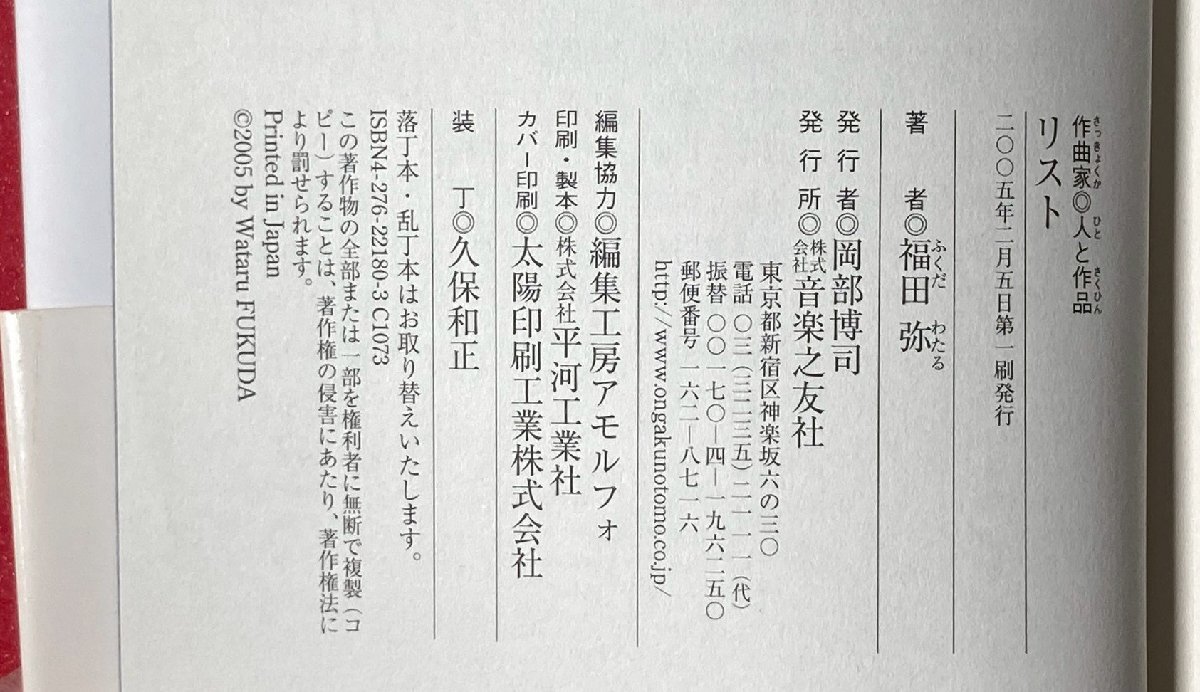 作曲家◎人と作品
さっきょくか ひと さくひん
リスト
二〇〇五年二月五日第一刷発行
著者◎福田 弥
ふくだ わたる
発行者◎岡部博司
発行所◎株式会社音楽之友社
東京都新宿区神楽坂六の三〇
電話 〇三(三二三五)二一一一(代)
振替 〇〇一七〇―四―一九六二五〇
郵便番号 一六二―八七一六
http://www.ongakunotomo.co.jp/
編集協力◎編集工房アモルフォ
印刷・製本◎株式会社平河工業社
カバー印刷◎太陽印刷工業株式会社
装丁◎久保和正
落丁本・乱丁本はお取り替えいたします。
ISBN4-276-22180-3 C1073
この著作物の全部または一部を権利者に無断で複製(コ
ピー)することは、著作権の侵害にあたり、著作権法に
より罰せられます。
Printed in Japan
©2005 by Wataru FUKUDA